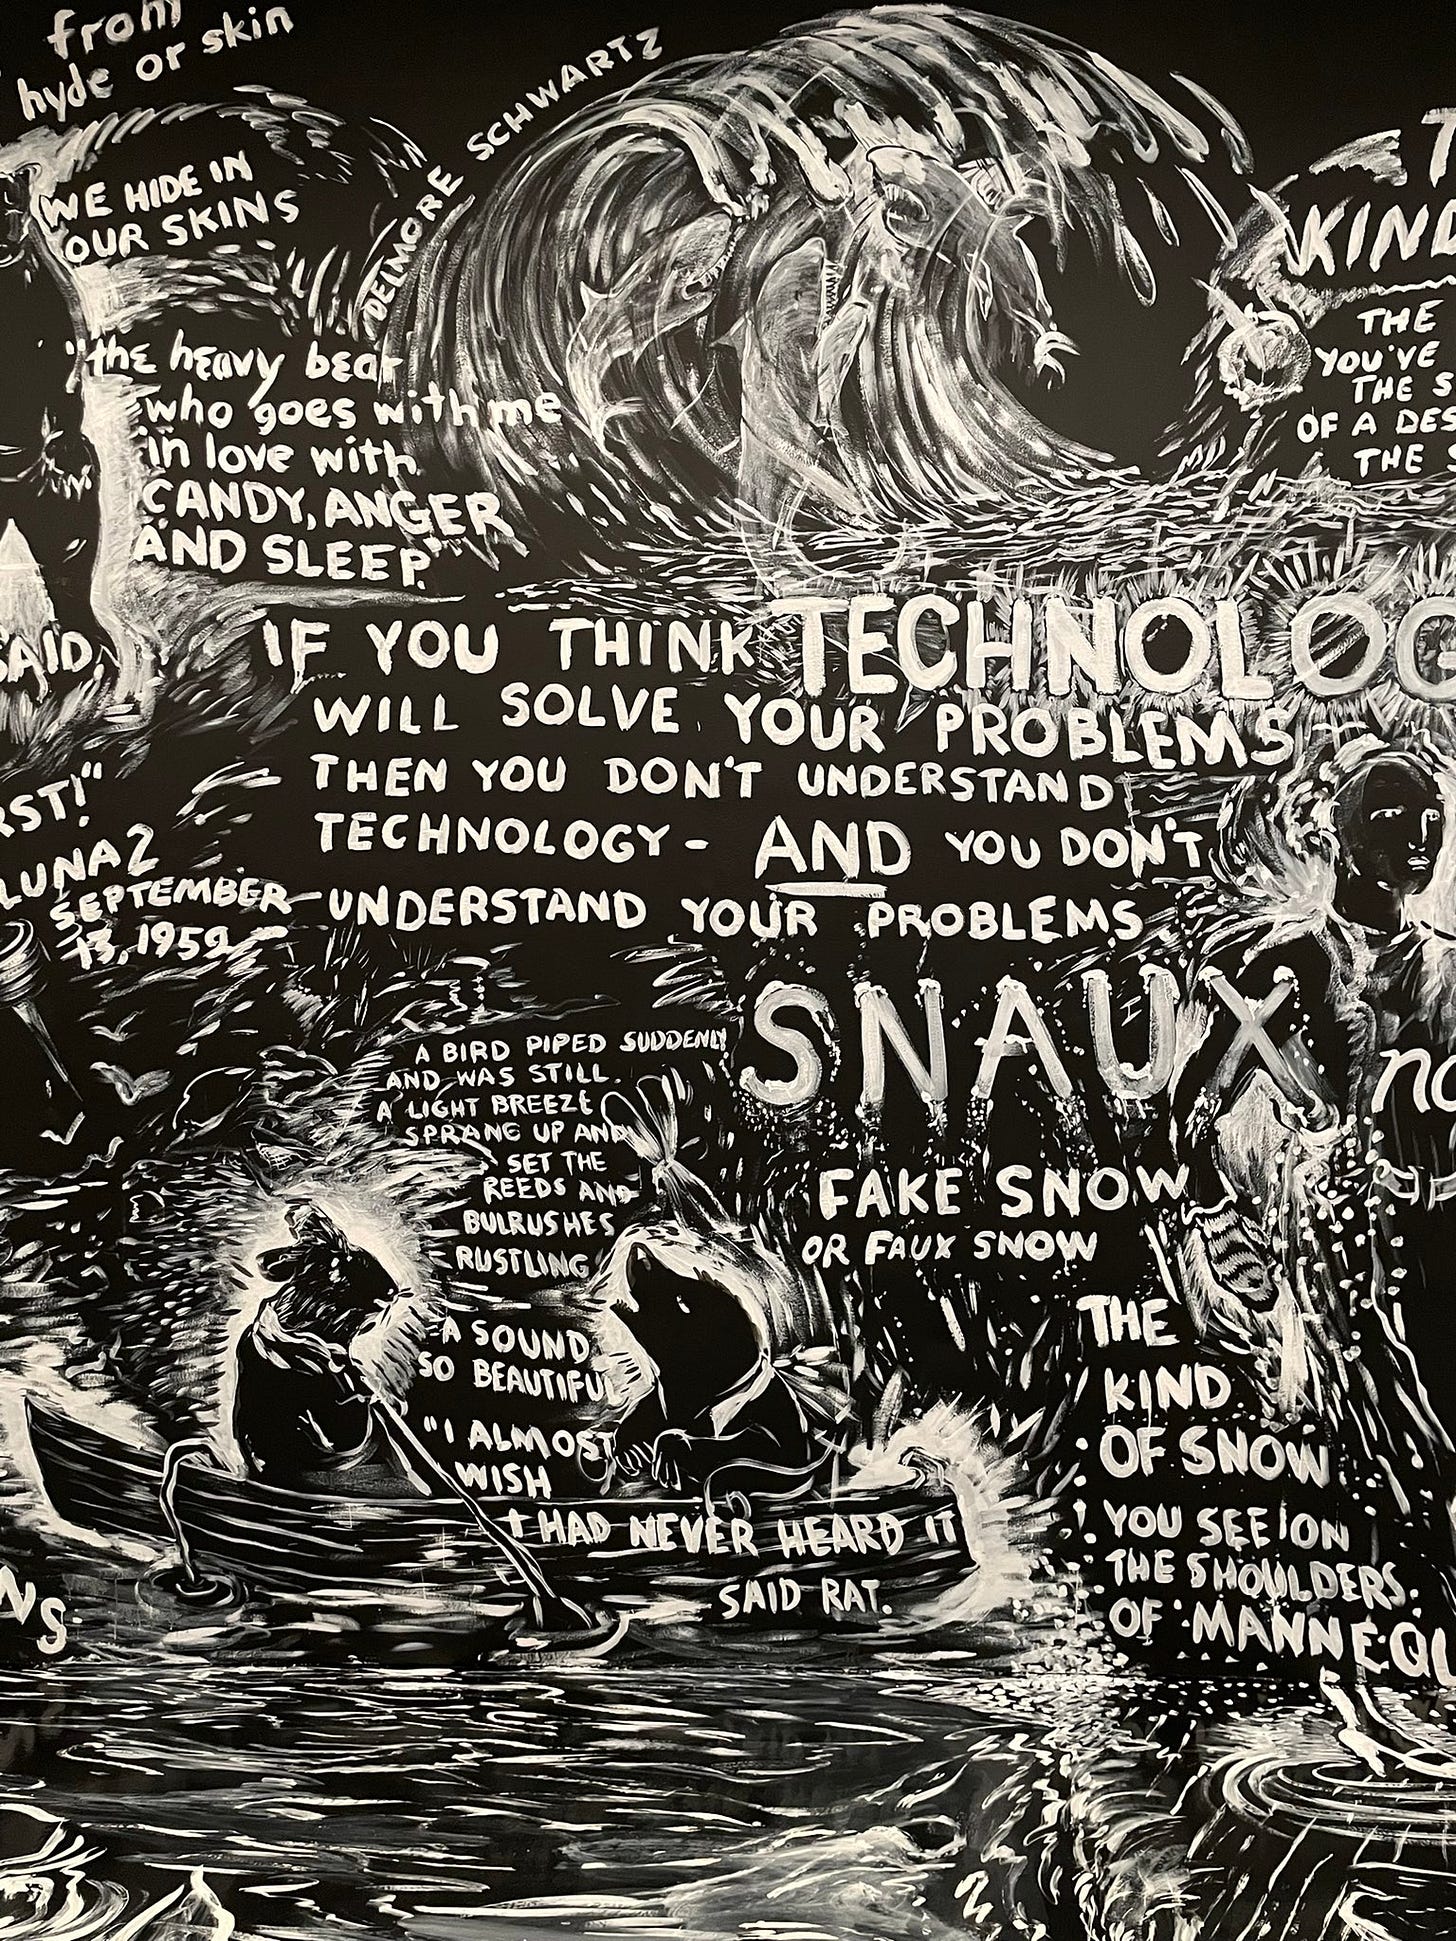 from
hyde or skin
WE HIDE IN
OUR SKINS
DELMORE SCHWARTZ
"the heavy bear
who goes with me
in love with
CANDY, ANGER
AND SLEEP."
KIND
THE
YOU'VE
THE S
OF A DES
THE S
SAID,
IF YOU THINK TECHNOLOG
WILL SOLVE YOUR PROBLEMS
THEN YOU DON'T UNDERSTAND
TECHNOLOGY - AND YOU DON'T
UNDERSTAND YOUR PROBLEMS
RST!"
LUNA 2
SEPTEMBER
13, 1959
SNAUX
FAKE SNOW
OR FAUX SNOW
THE
KIND
OF SNOW
YOU SEE ON
THE SHOULDERS
OF MANNEQU
no
A BIRD PIPED SUDDENLY
AND WAS STILL.
A LIGHT BREEZE
SPRANG UP AND
SET THE
REEDS AND
BULRUSHES
RUSTLING
A SOUND
SO BEAUTIFUL
"I ALMOST
WISH
I HAD NEVER HEARD IT
SAID RAT.
NS